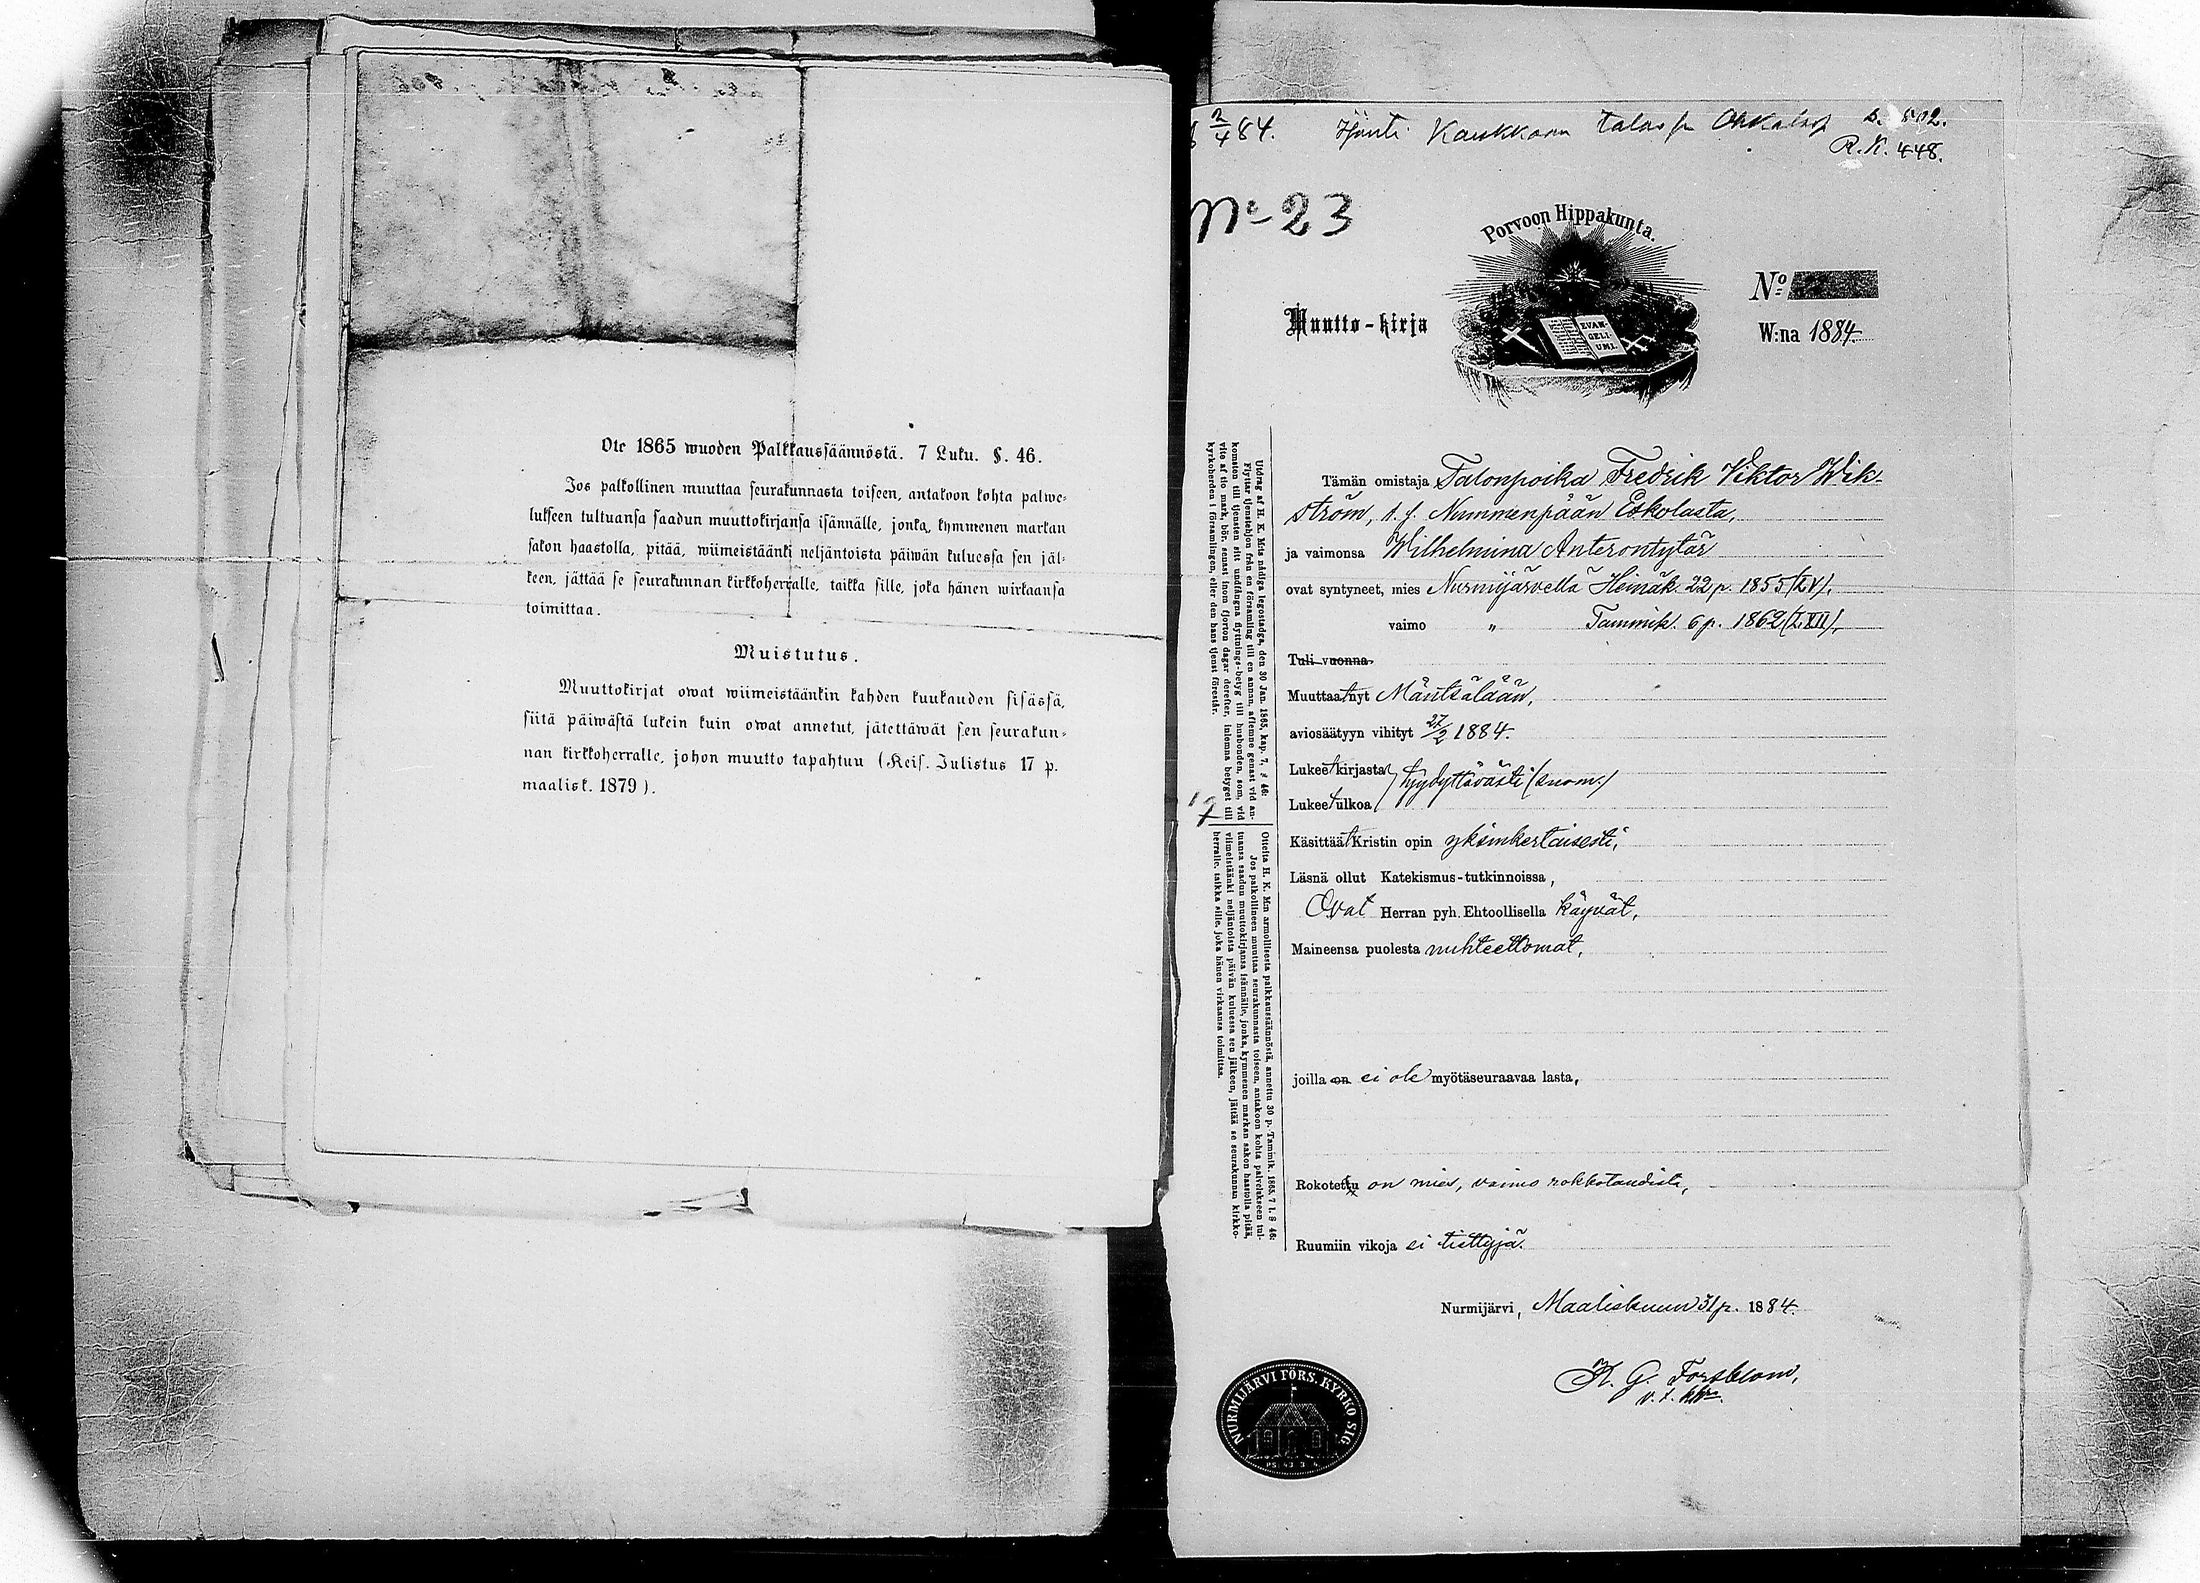 Ote 1865 wuoden Palkkaussäännöstä. 7 Luku. §. 46.
Jos palkollinen muuttaa seurakunnasta toiseen, antakoon kohta palwe-
lukseen tultuansa saadun muuttokirjansa isännälle, jonka, kymmenen markan
sakon haastolla, pitää, wiimeistäänki neljäntoista päiwän kuluessa sen jäl-
keen, jättää se seurakunnan kirkkoherralle, taikka sille, joka hänen wirkaansa
toimittaa.
Muistutus.
Muuttokirjat owat wiimeistäänkin kahden kuukauden sisässä,
siitä päiwästä lukein kuin owat annetut, jätettäwät sen seurakun-
nan kirkkoherralle, johon muutto tapahtuu (Keis. Julistus 17 p.
maalisk. 1879).
2/4 84. Kaukkoon talos Ohkola S. 502.
R.K. 448.
No 23
Porvoon Hippakunta.
EVAN-
GELI
UMI.
Muutto-kirja
No
W:na 1884.
Utdrag af H. K. M:ts nådiga legostadga, den 30 Jan. 1865, kap. 7, § 46:
Flyttar tjenstehjon från en församling till en annan, aflemne genast vid an-
komsten till tjensten sitt undfångna flyttnings-betyg till husbonden, som, vid
vite af tio mark, bör, senast inom fjorton dagar derefter, inlemna betyget till
kyrkoherden i församlingen, eller den hans tjenst förestår.
Otteita H. K. M:n armollisesta palkkaussäännöstä, annettu 30 p. Tammik. 1865, 7 l. § 46:
Jos palkollinen muuttaa seurakunnasta toiseen, antakoon kohta palvelukseen tul-
tuansa saadun muuttokirjansa isännälle, jonka, kymmenen markan sakon haastolla pitää,
viimeistäänki neljäntoista päivän kuluessa sen jälkeen, jättää se seurakunnan kirkko-
herralle, taikka sille, joka hänen virkaansa toimittaa.
Tämän omistaja Talonpoika Fredrik Viktor Wik-
ström, t. j. Nummenpään Eskolasta,
ja vaimonsa Wilhelmina Anterontytär
ovat syntyneet, mies Nurmijärvellä Heinäk. 22 p. 1855 (LV),
vaimo " Tammik. 6 p. 1862 (LXII),
Tuli vuonna
Muuttaat nyt Mäntsälään,
aviosäätyyn vihityt 27/2 1884.
Lukeet kirjasta tyydyttävästi (suom.)
Lukeet ulkoa
Käsittäät Kristin opin yksinkertaisesti,
Läsnä ollut Katekismus-tutkinnoissa,
Ovat Herran pyh. Ehtoollisella käyvät,
Maineensa puolesta nuhteettomat,
joilla on ei ole myötäseuraavaa lasta,
Rokotettu on mies, vaimo rokkotaudista,
Ruumiin vikoja ei tiettyjä.
Nurmijärvi, Maaliskuun 31 p. 1884.
K. G. Forsblom,
v. t. khra.
NURMIJÄRVI FÖRS. KYRKO SIG.